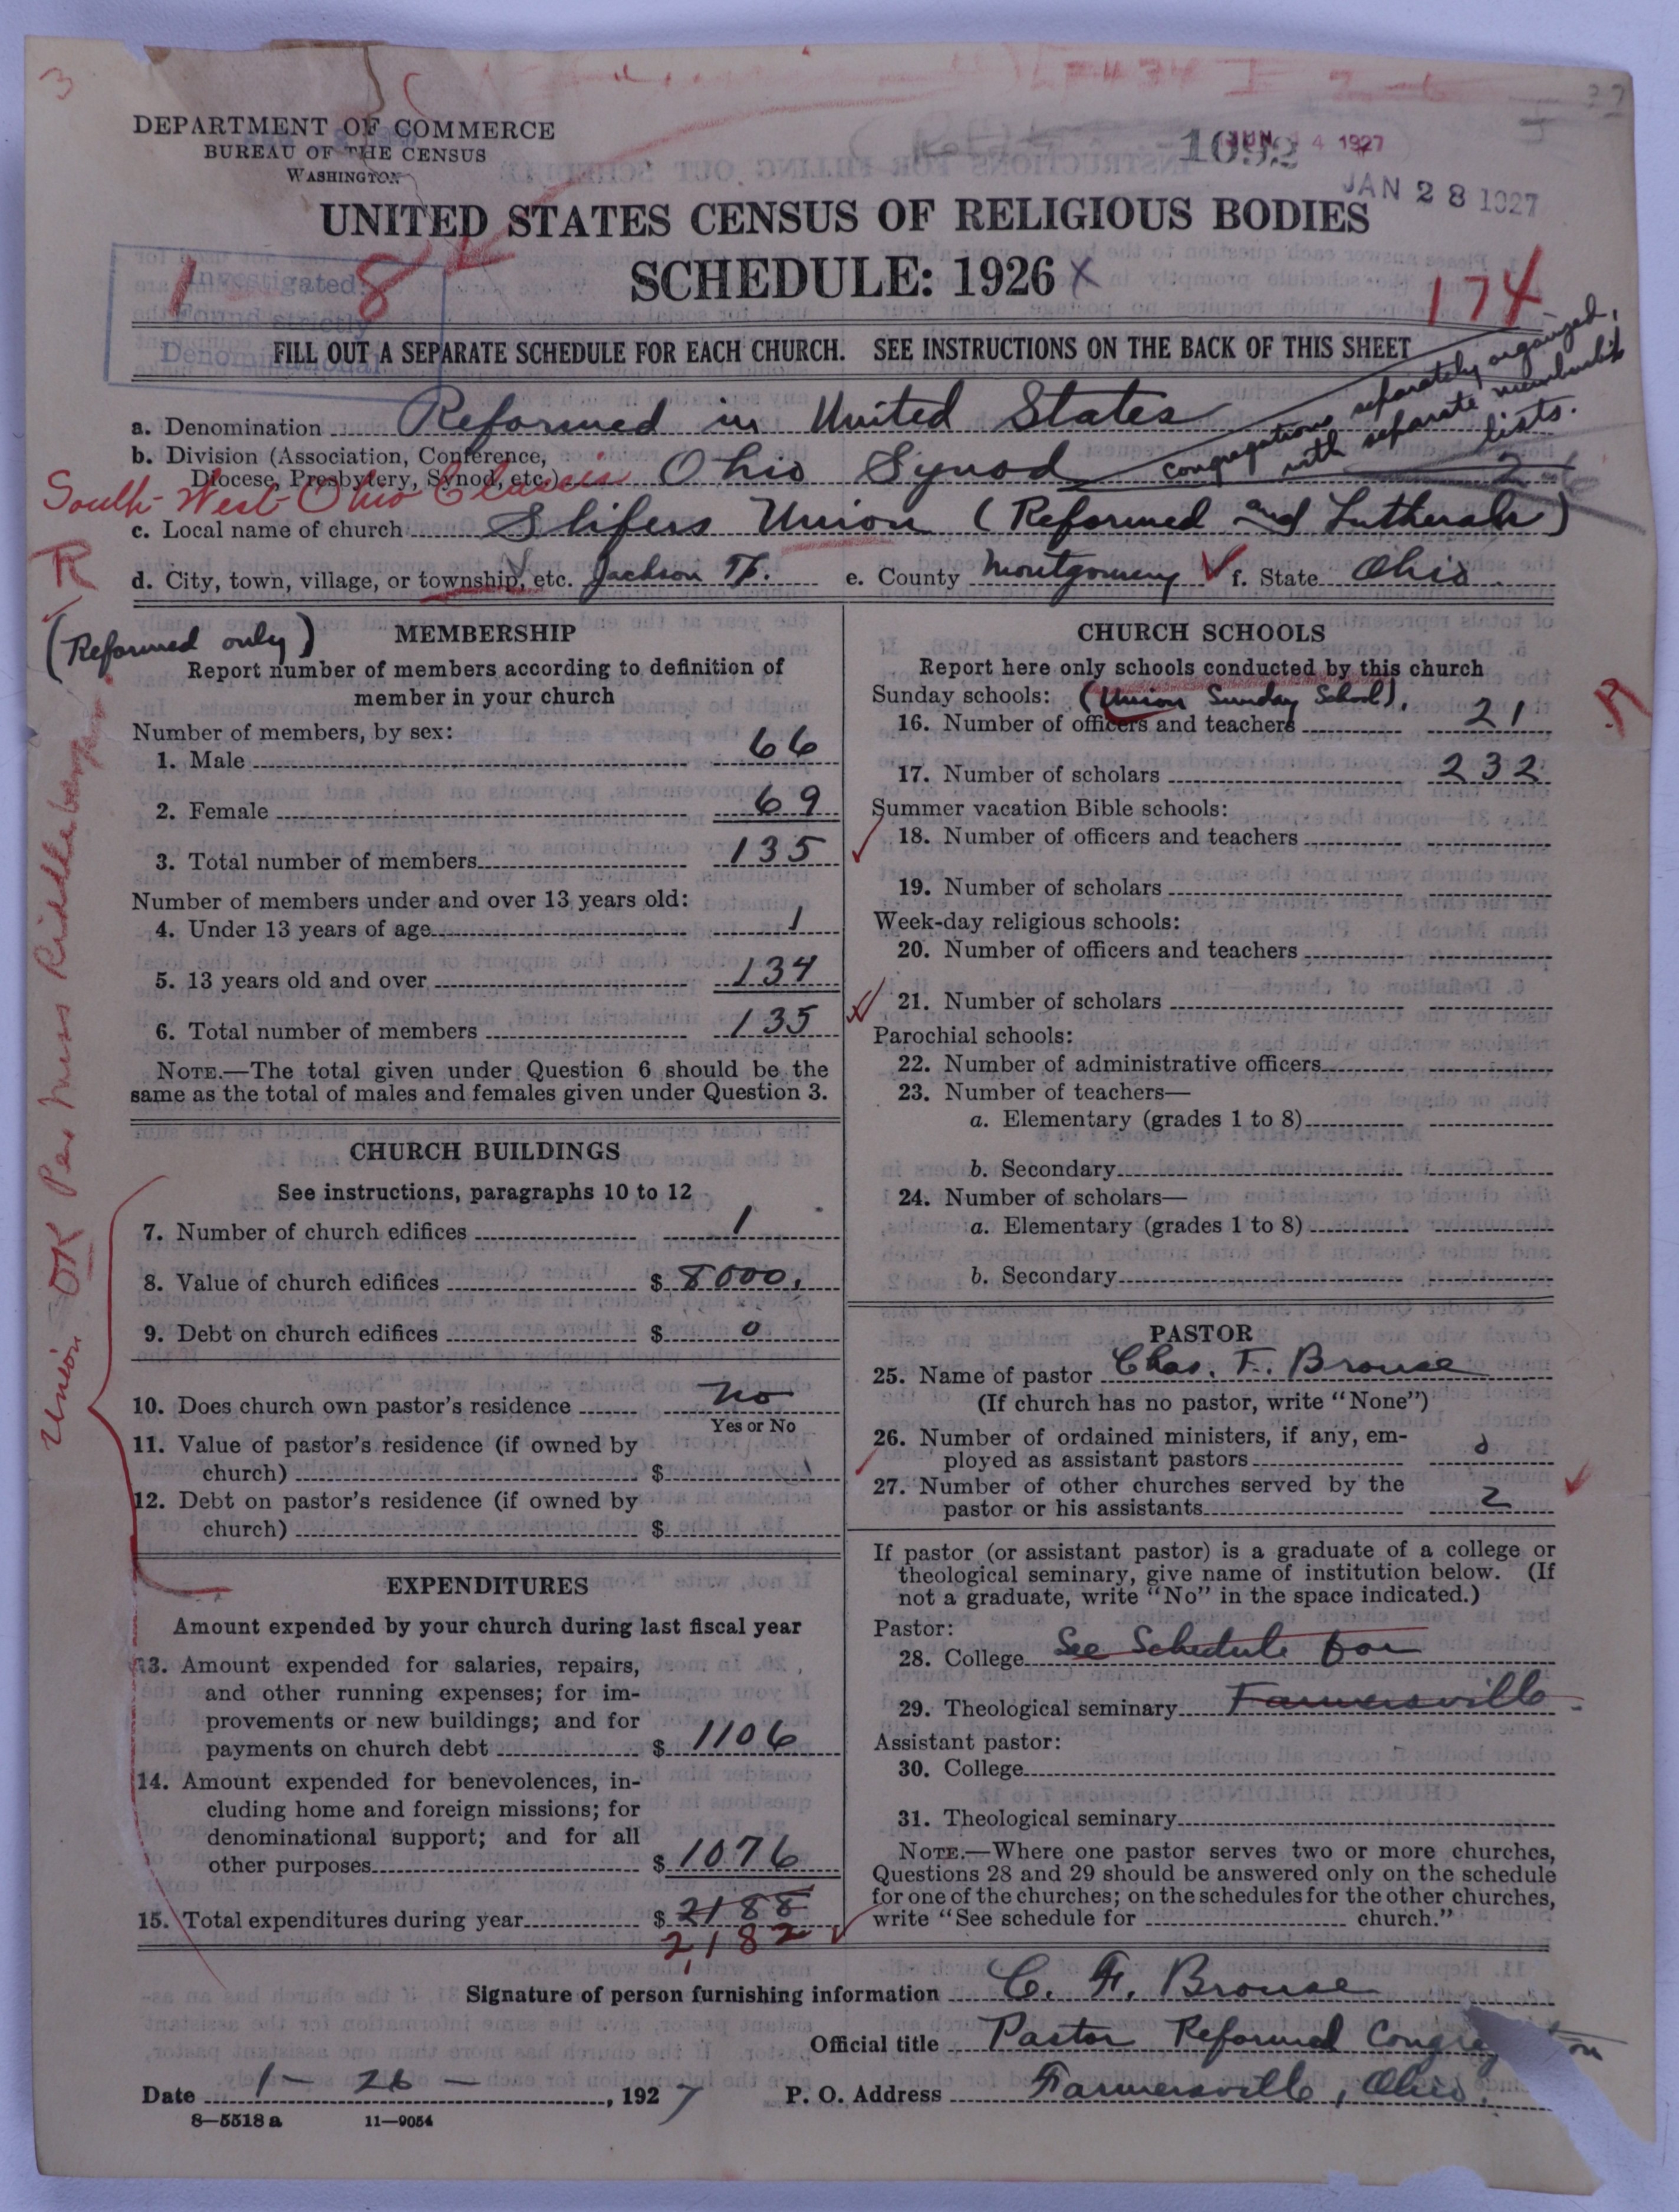 3
DEPARTMENT OF COMMERCE
BUREAU OF THE CENSUS
WASHINGTON
1092
JUN 14 1927
JAN 28 1927
UNITED STATES CENSUS OF RELIGIOUS BODIES
SCHEDULE: 1926 x
1 8
174
Investigated
Found strictly
Denominational
FILL OUT A SEPARATE SCHEDULE FOR EACH CHURCH. SEE INSTRUCTIONS ON THE BACK OF THIS SHEET
congregations separately organized,
with separate membership
lists.
a. Denomination Reformed in United States
b. Division (Association, Conference,
Diocese, Presbytery, Synod, etc.) Ohio Synod
South-West-Ohio Classis
c. Local name of church Slifers Union (Reformed and Lutheran)
R
d. City, town, village, or township, etc. Jackson Tp. e. County Montgomery f. State Ohio
(Reformed only)
MEMBERSHIP
Report number of members according to definition of
member in your church
Number of members, by sex:
1. Male 66
2. Female 69
3. Total number of members 135
Number of members under and over 13 years old:
4. Under 13 years of age 1
5. 13 years old and over 134
6. Total number of members 135
NOTE.—The total given under Question 6 should be the
same as the total of males and females given under Question 3.
CHURCH BUILDINGS
See instructions, paragraphs 10 to 12
7. Number of church edifices 1
8. Value of church edifices $ 8000.
9. Debt on church edifices $ 0
10. Does church own pastor's residence no
Yes or No
11. Value of pastor's residence (if owned by
church) $
12. Debt on pastor's residence (if owned by
church) $
Union OK Per Miss Riddleberger
EXPENDITURES
Amount expended by your church during last fiscal year
13. Amount expended for salaries, repairs,
and other running expenses; for im-
provements or new buildings; and for
payments on church debt $ 1106
14. Amount expended for benevolences, in-
cluding home and foreign missions; for
denominational support; and for all
other purposes $ 1076
15. Total expenditures during year $ 2188
2182
CHURCH SCHOOLS
Report here only schools conducted by this church
Sunday schools: (Union Sunday School).
16. Number of officers and teachers 21
R
17. Number of scholars 232
Summer vacation Bible schools:
18. Number of officers and teachers
19. Number of scholars
Week-day religious schools:
20. Number of officers and teachers
21. Number of scholars
Parochial schools:
22. Number of administrative officers
23. Number of teachers—
a. Elementary (grades 1 to 8)
b. Secondary
24. Number of scholars—
a. Elementary (grades 1 to 8)
b. Secondary
PASTOR
25. Name of pastor Chas. F. Brouse
(If church has no pastor, write "None")
26. Number of ordained ministers, if any, em-
ployed as assistant pastors 0
27. Number of other churches served by the
pastor or his assistants 2
If pastor (or assistant pastor) is a graduate of a college or
theological seminary, give name of institution below. (If
not a graduate, write "No" in the space indicated.)
Pastor:
28. College See Schedule for
29. Theological seminary Farmersville
Assistant pastor:
30. College
31. Theological seminary
NOTE.—Where one pastor serves two or more churches,
Questions 28 and 29 should be answered only on the schedule
for one of the churches; on the schedules for the other churches,
write "See schedule for church."
Signature of person furnishing information C. F. Brouse
Official title Pastor Reformed Congregation
Date 1 - 26 -, 1927 P. O. Address Farmersville, Ohio.
8—5518a 11—9054